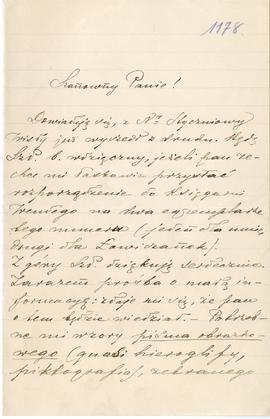 1178.
Szanowny Panie!
Dowiaduję się, z Nr Styczniowy
Wisły już wyszedł z druku. Będę
Szp. b. wdzięczny, jeżeli pan ze-
chce mi łaskawie przysłać
rozporządzenie do Księgarni
Wendego na dwa egzemplarze
tego numeru (jeden dla mnie,
drugi dla Zawiszanek).
Z góry Szp. dziękuję serdecznie.
Zarazem prośba o małą in-
formacyą: zdaje mi się, że pan
o tem będzie wiedział. — Potrzeb-
ne mi wzory pisma obrazko-
wego (quasi hieroglify,
piktografia), zebranego